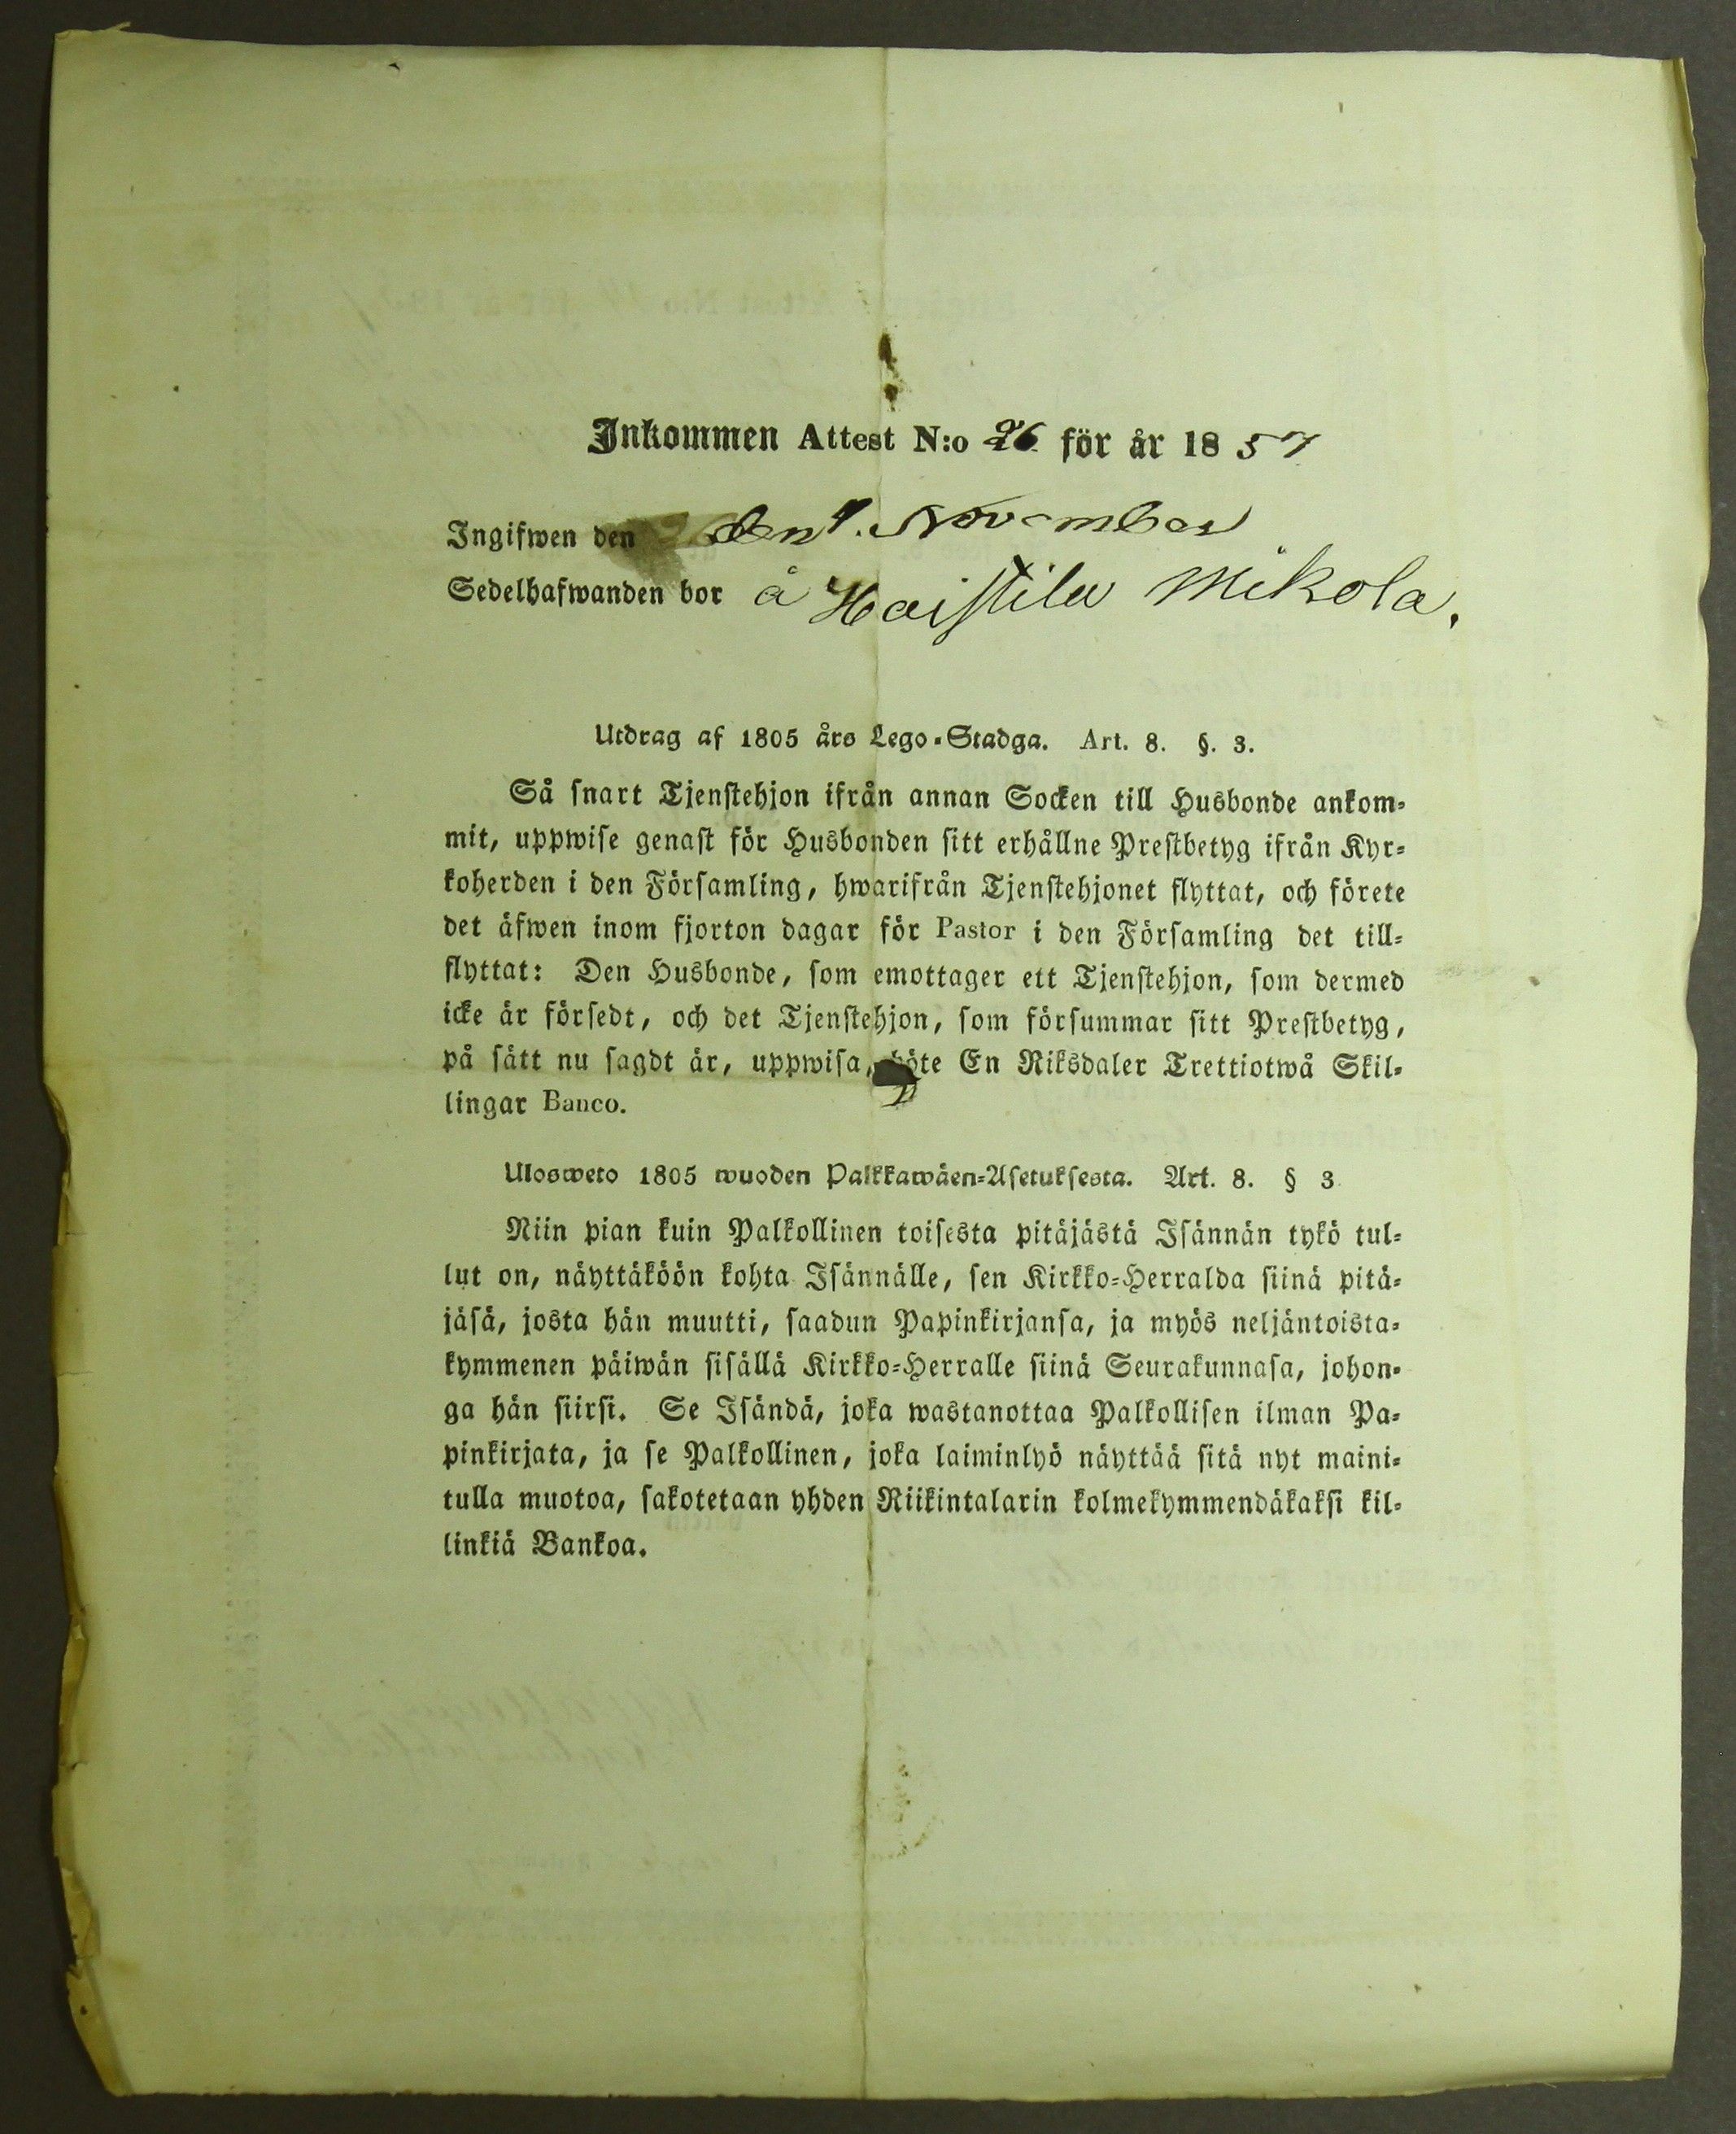 Inkommen Attest N:o 26 för år 1857
Ingifwen den den 1. November
Sedelhafwanden bor å Haistila Mikola.
Utdrag af 1805 års Lego-Stadga. Art. 8. §. 3.
Så snart Tjenstehjon ifrån annan Socken till Husbonde ankom-
mit, uppwise genast för Husbonden sitt erhållne Prestbetyg ifrån Kyr-
koherden i den Församling, hwarifrån Tjenstehjonet flyttat, och förete
det äfwen inom fjorton dagar för Pastor i den Församling det till-
flyttat: Den Husbonde, som emottager ett Tjenstehjon, som dermed
icke är försedt, och det Tjenstehjon, som försummar sitt Prestbetyg,
på sätt nu sagdt är, uppwisa, böte En Riksdaler Trettiotwå Skil-
lingar Banco.
Ulosweto 1805 wuoden Palkkawäen-Asetuksesta. Art. 8. § 3
Niin pian kuin Palkollinen toisesta pitäjästä Isännän tykö tul-
lut on, näyttäköön kohta Isännälle, sen Kirkko-Herralda siinä pitä-
jäsä, josta hän muutti, saadun Papinkirjansa, ja myös neljäntoista-
kymmenen päiwän sisällä Kirkko-Herralle siinä Seurakunnasa, johon-
ga hän siirsi. Se Isändä, joka wastanottaa Palkollisen ilman Pa-
pinkirjata, ja se Palkollinen, joka laiminlyö näyttää sitä nyt maini-
tulla muotoa, sakotetaan yhden Riikintalarin kolmekymmendäkaksi kil-
linkiä Bankoa.